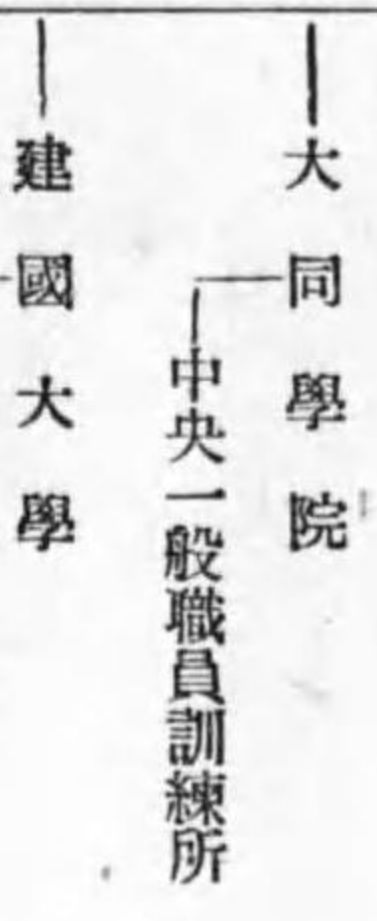 大同學院
中央一般職員訓練所
建國大學